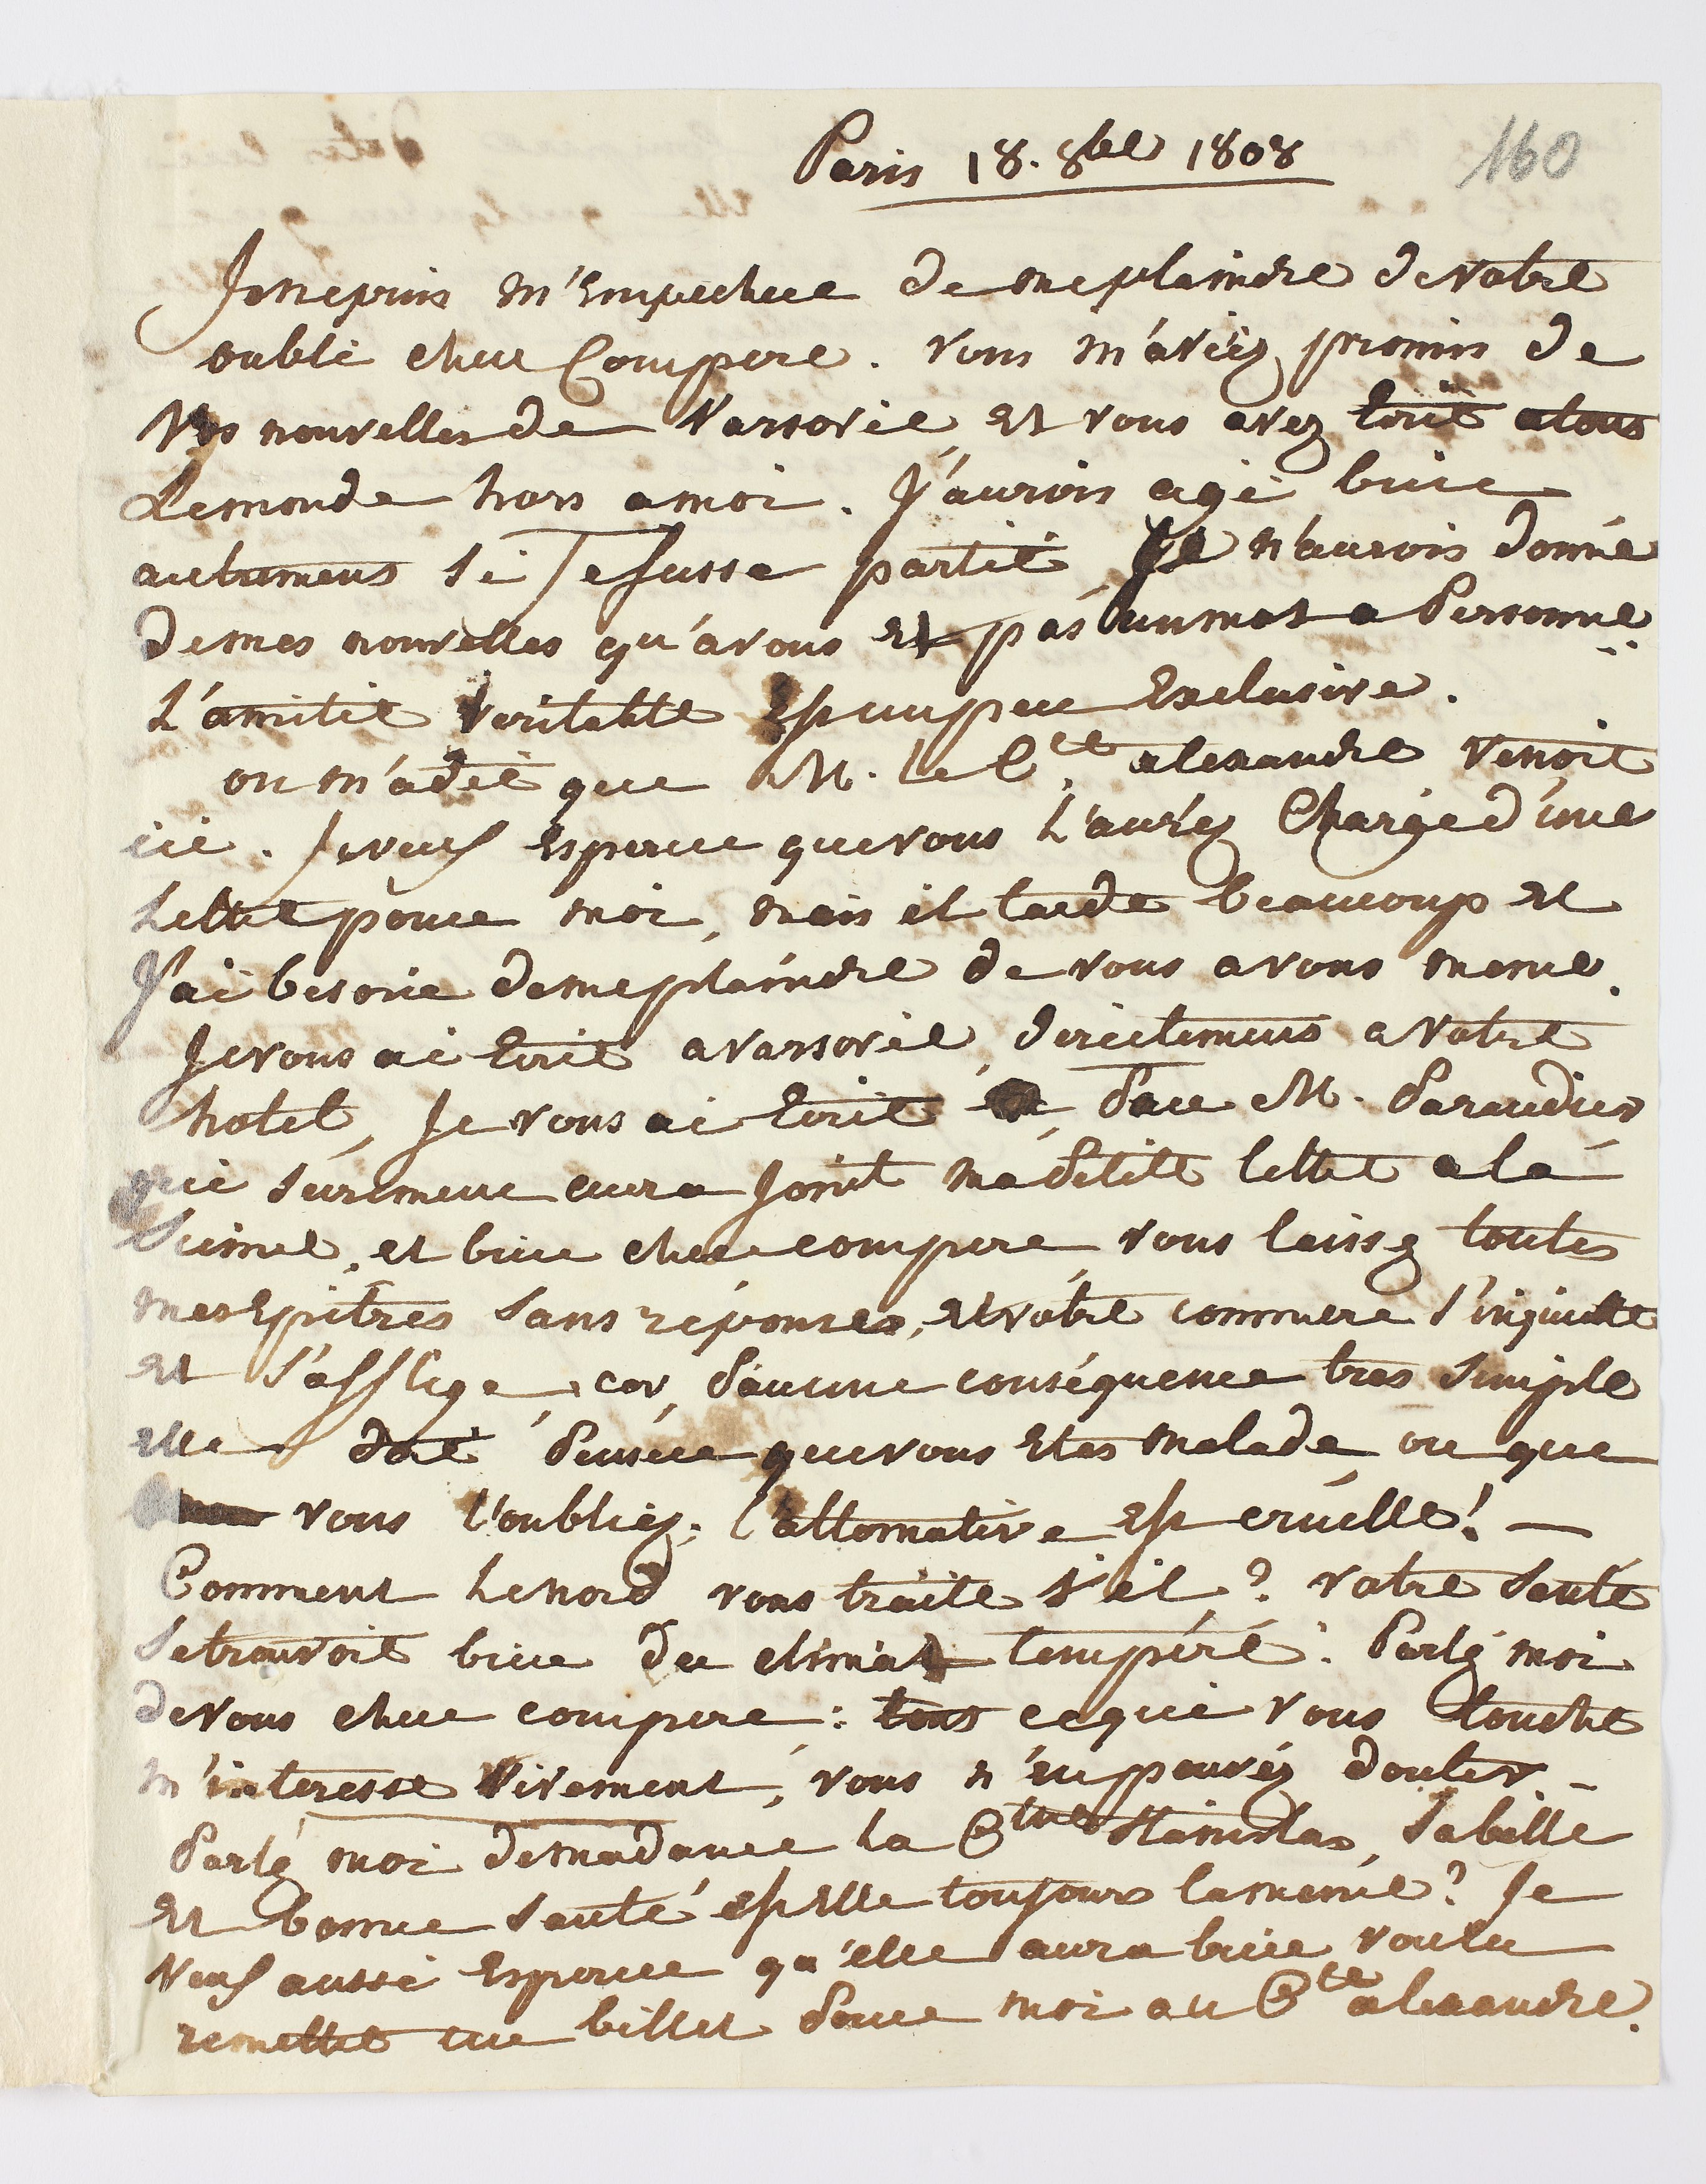 Paris 18. 8bre 1808
160
Je ne puis m'Empecher de me plaindre de votre
oubli cher Compere. vous m'aviéz promis de
vos nouvelles de Varsovie, et vous avez écrit a tous
Le monde hors a moi. J'aurois agi bien
autrement si Je fusse partie Je n'aurois donné
de mes nouvelles qu'a vous et pas un mot a Personne..
L'amitie veritable Est un peu Exclusive.
on m'a dit que M. le Cte. alexandre venoit
ici. Je veux esperer que vous L'auréz Chargé d'une
Lettre pour moi, mais il tarde beaucoup et
J'ai besoin de me plaindre de vous a vous meme.
Je vous ai Ecrit a varsovie, directement a votre
hotel, Je vous ai Ecrit Par M. Parandier
qui surement aura Joint ma Petite lettre a la
sienne, et bien cher compere vous laissez toutes
mes Epitres sans réponses, et votre commere s'inquiette
et s'afflige, car, Par une conséquence tres simple
elle doit Penser que vous Etes malade ou que
vous l'oubliez; l'alternative est cruelle! —
Comment Le nord vous traite t'il? votre santé
se trouvoit bien du climat tempéré. Parlé moi
de vous cher compere: tout ce qui vous touche
m'interesse vivement, vous n'en pouvéz douter –
Parlé moi de madame la Ctesse Stanislas, sa belle
et bonne santé est Elle toujours la meme? Je
veux aussi Esperer qu'elle aura bien voulu
remettre un billet Pour moi au Cte alexandre.